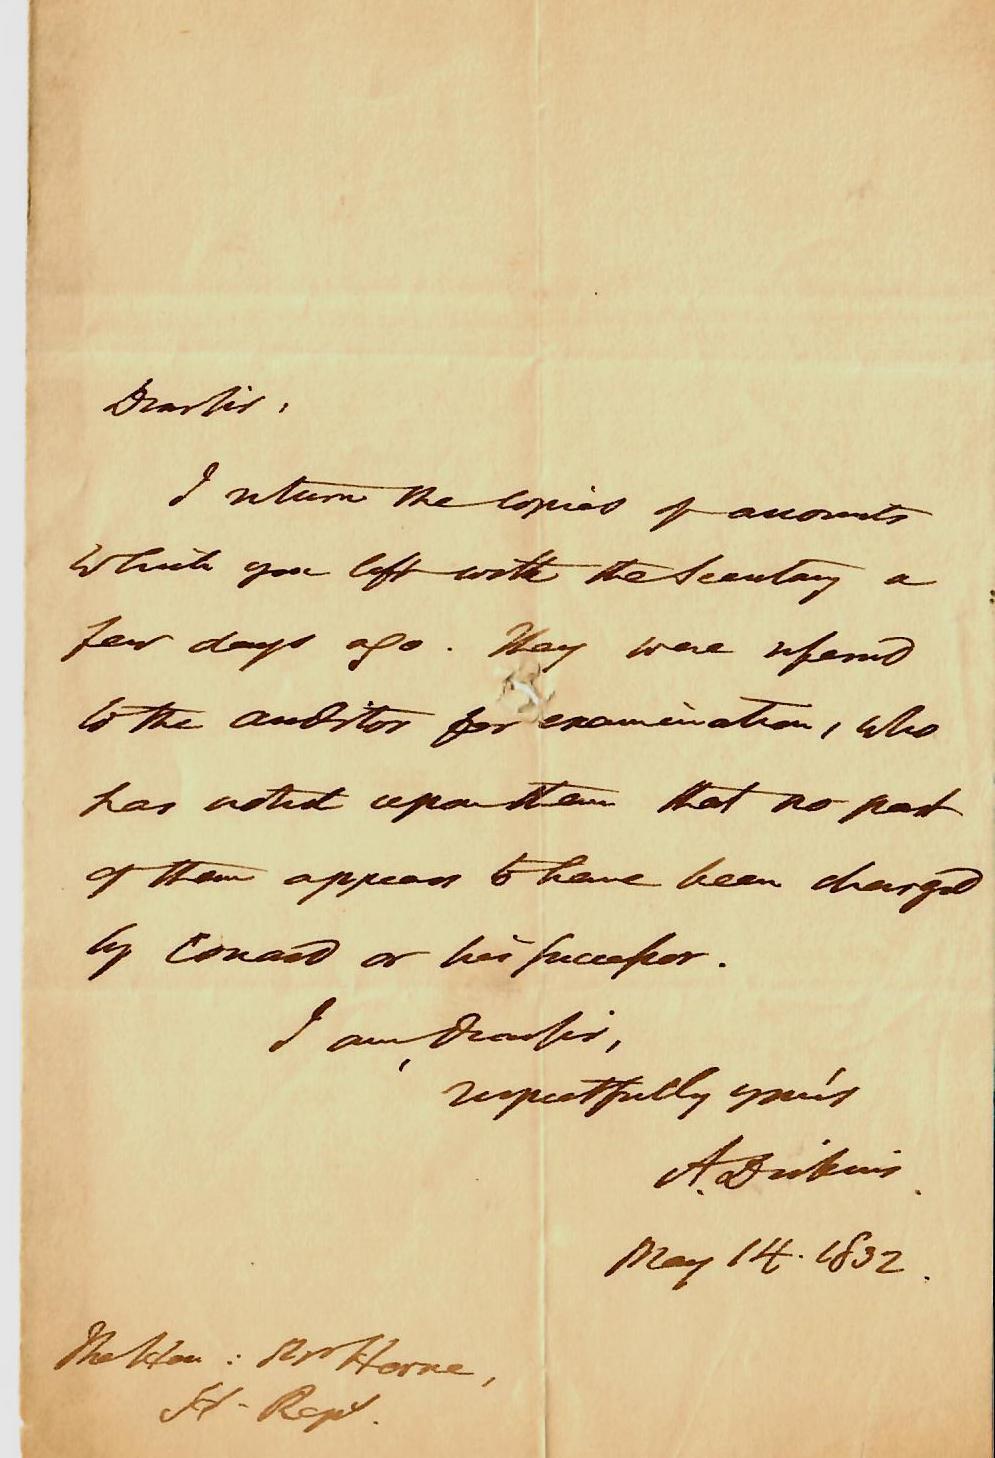 Dear Sir,
I return the copies of accounts
which you left with the Secretary a
few days ago. They were referred
to the auditor for examination, who
has noted upon them that no part
of them appears to have been charged
by Conard or his successor.
I am, Dear Sir,
respectfully yours
A. Dickins.
May 14. 1832.
The Hon: Mr Horne,
H. Rep.